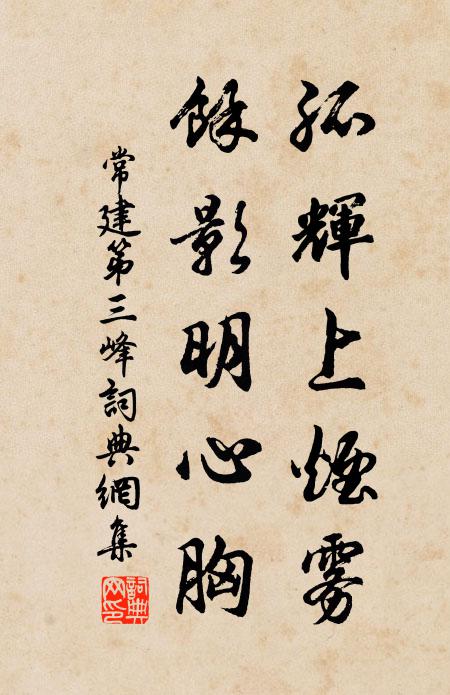 孤輝上煙雾
餘影明心胸
常建第三峰詞典網集
詞典网印